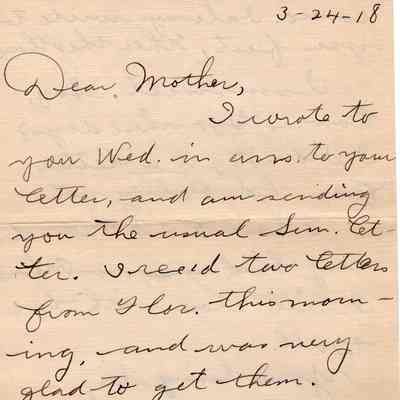 3-24-18
Dear Mother,
I wrote to
you Wed. in ans. to your
letter, and am sending
you the usual Sun. let-
ter. I rec'd two letters
from Flor. this morn-
ing, and was very
glad to get them.